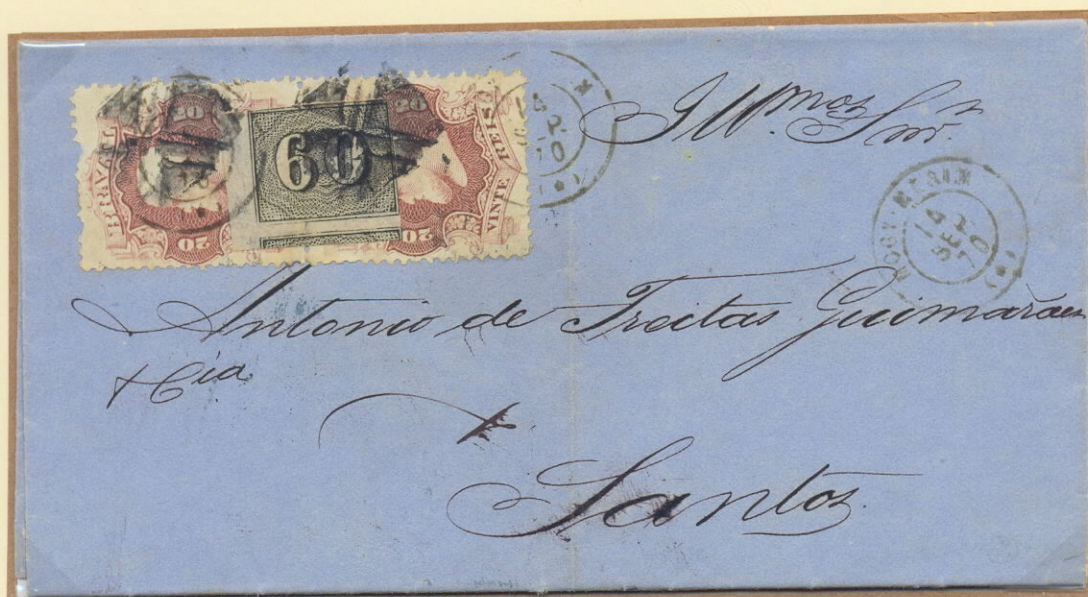 20 20
60
20 20
VINTE REIS
Illmos Snr.
MOGY-MERIM
14
SET
70
Antonio de Freitas Guimarães
& Cia
Santos